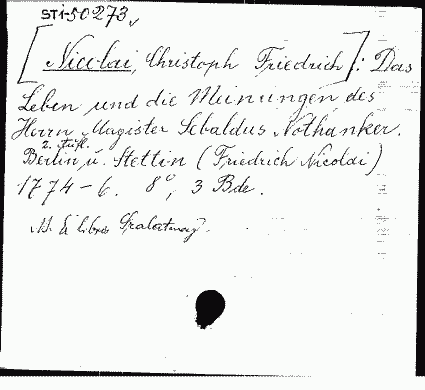 STI-50273
[Nicolai, Christoph Friedrich]: Das
Leben und die Meinungen des
Herrn Magister Sebaldus Nothanker.
2. Aufl.
Berlin u. Stettin (Friedrich Nicolai)
1774-6. 8°, 3 Bde.
Ex libris